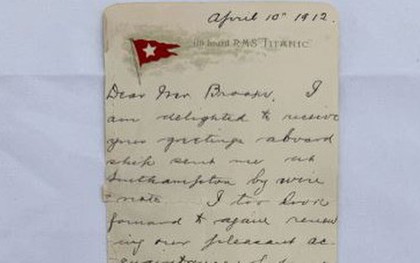 April 10th 1912.
on board R.M.S. TITANIC
Dear Mr. Brooks, I
am delighted to receive
your greetings aboard
ship sent me at
Southampton by wire
& note. I too look
forward to again renew
ing our pleasant ac